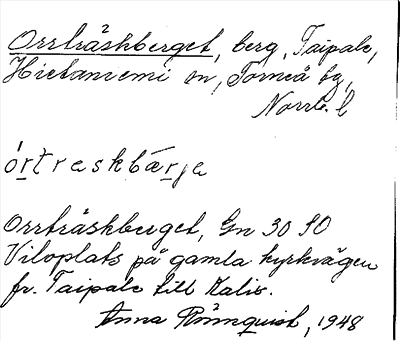 Orrträskberget, berg, Taipale,
Hietaniemi sn, Torneå tg,
Norrb. l
órtreskbærje
Orrträskberget, Gn 30 SO
Viloplats på gamla kyrkvägen
fr. Taipale till Kalix.
Anna Rönnquist, 1948